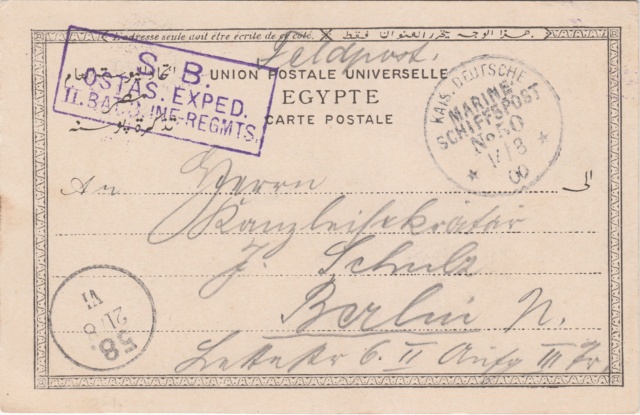 L'adresse seule doit être écrite de ce côté. هذا الوجه يتحرر العنوان فقط
Feldpost.
S. B.
OSTAS. EXPED.
II. BAT. INF-REGMTS.
UNION POSTALE UNIVERSELLE
EGYPTE
CARTE POSTALE
مصر
تذكرة بوسته
KAIS. DEUTSCHE
MARINE
SCHIFFSPOST
No 50
1/8
00
An Herrn الى
Kanzleisekretär
J. Schulz
Berlin N.
6. II Aufg III Tr.
58.
21/8
VI